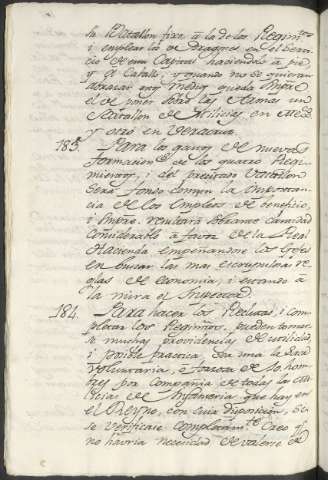 la Batallon fixo à la de los Regim.tos
i emplear los de Dragones en el Servi-
cio de esta Capital haciendolo à pie,
y à Caballo, y quando no se quieran
abrazar este medio queda
el de poner sobre las Armas un
Batallon de Milicias en Mex.co
y otro en Veracruz
183. Para los gastos de nueva
formacion de los quatro Regi-
mientos, i del precitado Batallon
será fondo comun la importan-
cia de los Empleos de beneficio,
i resultará bastante cantidad
considerable à favor de la Real
Hacienda empeñandose los Gefes
en buscar las mas escrupulosas re-
glas de economia, i estando à
la mira el Inspector.
184. Para hacer las Reclutas, i com-
pletar los Regim.tos, pueden tomar-
se muchas providencias de utilidad,
i posible practica. Sea una la Recluta
Voluntaria, à fuerza de 10 hom-
bres por Compañia de todas las Mi-
licias de Infanteria que hay en
el Reyno, con cuia disposicion, si
se verificase completam.te Caso q.e
no havria necesidad de valerse de